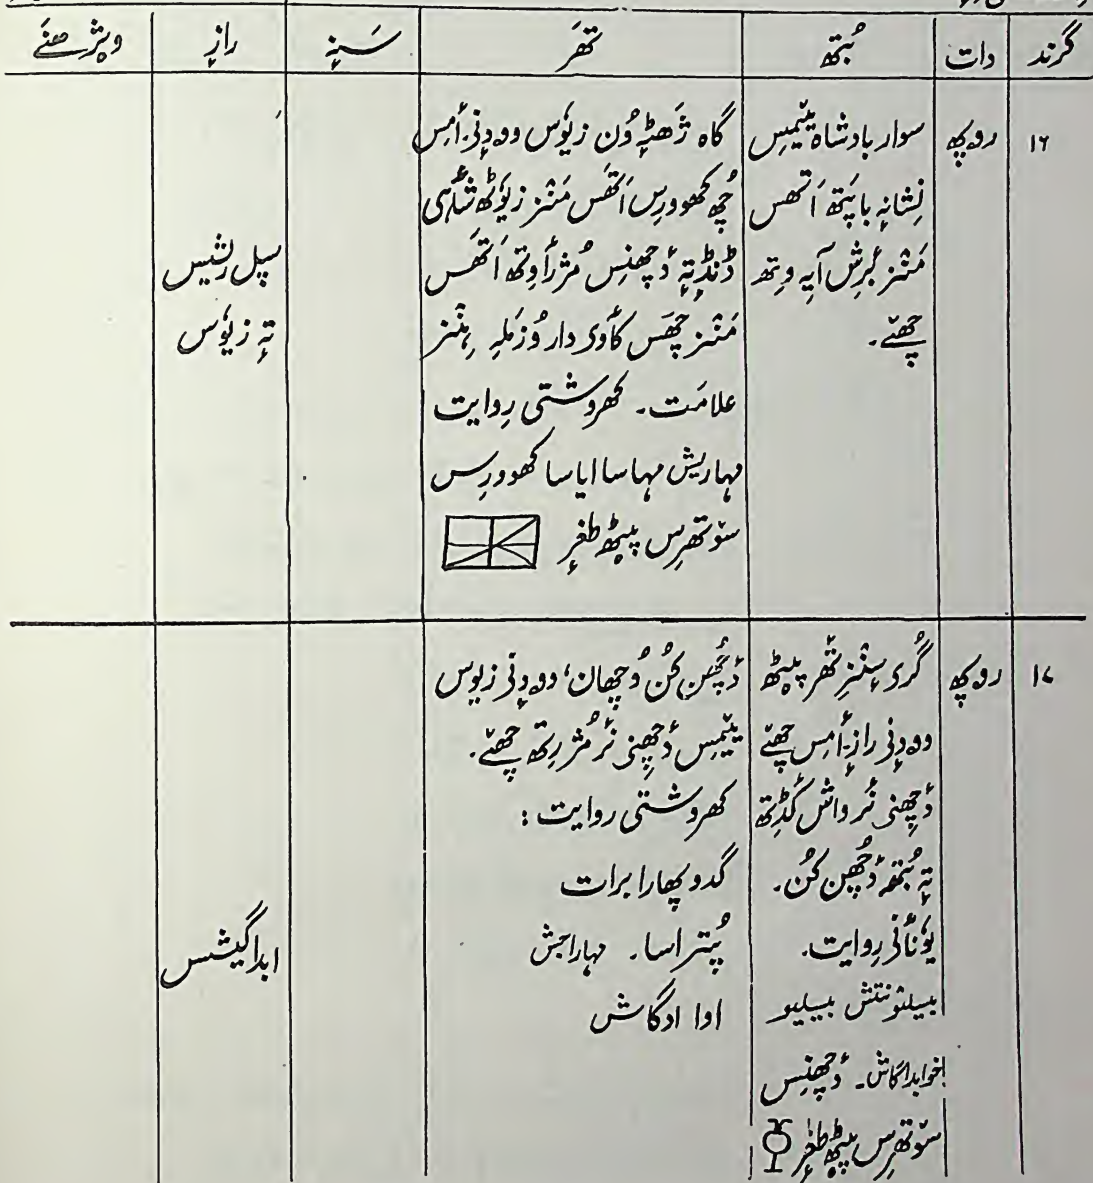 گرند دات بُتھ تھَر سَنہٕ رازٕ ویژھنَے
۱۶ روپھ
سوار بادشاہ ییٚمیس
نِشانہٕ باپتھ اَتھس
مَنٛز بُرش آیہِ وِتھ
چھےٚ۔
گاہ ژَھٹہٕ وُن زیوٗس وودٕنۍ۔ اَمِس
چُھ کھووُرِس اَتھَس مَنٛز زیوٗٹھ شٲہی
ڈنڈ تہٕ دٔچھنِس مُژرٲوِتھ اَتھَس
مَنٛز چَھس کٲوی دار وُزمَلہِ ہِنٛز
علامَت۔ کھروشتی رِوایت
مہاریش مہاسا ایاسا کھووُرِس
سۆتھرِس پیٚٹھ طغرٕ
سپل ریشیس
تہٕ زیوٗس
۱۷ روپھ
گُرۍ سٕنٛزِ تھٔرِ پیٚٹھ
وودٕنۍ رازٕ۔ اَمِس چھےٚ
دٔچھنۍ نٔر واش کٔڈِتھ
تہٕ بُتھ دٔچھُن کُن۔
یوٗنٲنۍ رِوایت۔
بیسیلئونتش بیسیلیو
اخوابداگاش۔ دٔچھنِس
سۆتھرِس پیٚٹھ طغرٕ
دٔچھُن کُن وُچھان، وودٕنۍ زیوٗس
ییٚمیس دٔچھنۍ نٔر مُژرِتھ چھےٚ۔
کھروشتی روایت :
گدو پھارا برات
پُتراسا۔ مہاراجش
اوا ادگاش
ابداگیشس